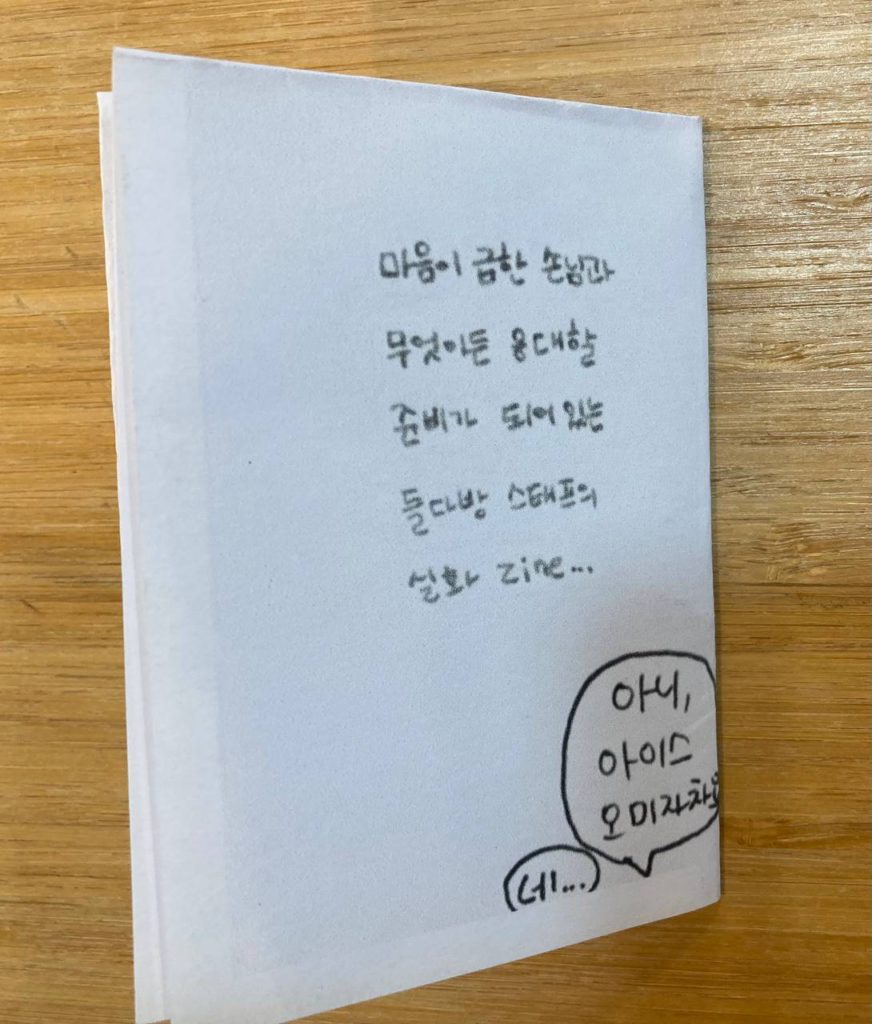 마음이 급한 손님과
무엇이든 응대할
준비가 되어 있는
들다방 스태프의
실화 zine...
아니,
아이스
오미자차요
(네...)